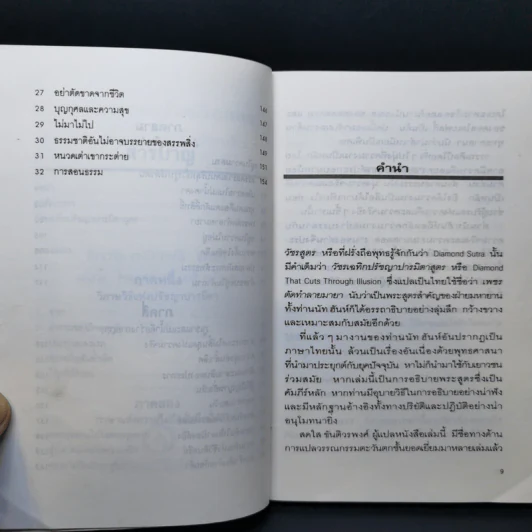 27 อย่าตัดขาดจากชีวิต 146
28 บุญกุศลและความสุข 147
29 ไม่มาไม่ไป 148
30 ธรรมชาติอันไม่อาจบรรยายของสรรพสิ่ง 149
31 หนวดเต่าเขากระต่าย 151
32 การสอนธรรม 154
คำนำ
วัชรสูตร หรือที่ฝรั่งถือพุทธรู้จักกันว่า Diamond Sutra นั้น
มีคำเดิมว่า วัชรเฉทิกปรัชญาปารมิตาสูตร หรือ Diamond
That Cuts Through Illusion ซึ่งแปลเป็นไทยใช้ชื่อว่า เพชร
ตัดทำลายมายา นับว่าเป็นพระสูตรสำคัญของฝ่ายมหายาน
ทั้งท่านนัท ฮันห์ก็ได้อรรถาธิบายอย่างลุ่มลึก กว้างขวาง
และเหมาะสมกับสมัยอีกด้วย
ที่แล้ว ๆ มางานของท่านนัท ฮันห์อันปรากฏเป็น
ภาษาไทยนั้น ล้วนเป็นเรื่องอันเนื่องด้วยพุทธศาสนา
ที่นำมาประยุกต์กับยุคปัจจุบัน หาไม่ก็นำมาใช้กับเยาวชน
ร่วมสมัย หากเล่มนี้เป็นการอธิบายพระสูตรซึ่งเป็น
คัมภีร์หลัก หากท่านมีอุบายวิธีในการอธิบายอย่างน่าฟัง
และมีหลักฐานอ้างอิงทั้งทางปริยัติและปฏิบัติอย่างน่า
อนุโมทนายิ่ง
สดใส ขันติวรพงศ์ ผู้แปลหนังสือเล่มนี้ มีชื่อทางด้าน
การแปลวรรณกรรมตะวันตกชั้นยอดเยี่ยมมาหลายเล่มแล้ว
9